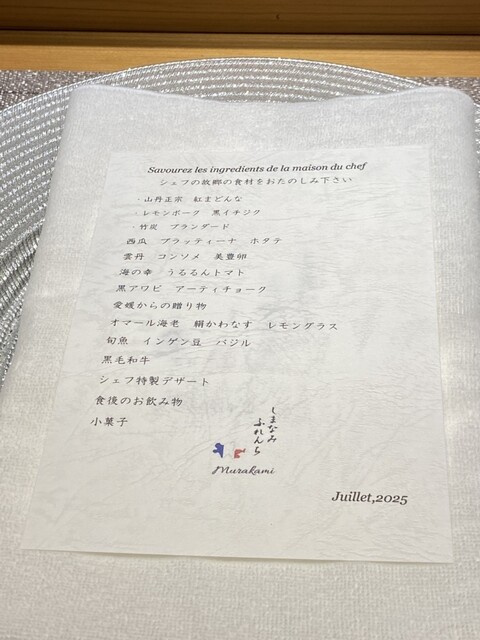 Savourez les ingredients de la maison du chef
シェフの故郷の食材をおたのしみ下さい
・山丹正宗 紅まどんな
・レモンポーク 黒イチジク
・竹炭 ブランダード
西瓜 ブラッティーナ ホタテ
雲丹 コンソメ 美豊卵
海の幸 うるるんトマト
黒アワビ アーティチョーク
愛媛からの贈り物
オマール海老 絹かわなす レモングラス
旬魚 インゲン豆 バジル
黒毛和牛
シェフ特製デザート
食後のお飲み物
小菓子
しまなみ
ふれんち
Murakami
Juillet,2025